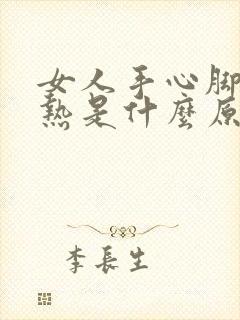 女人手心脚
熱是什麼原
李長生